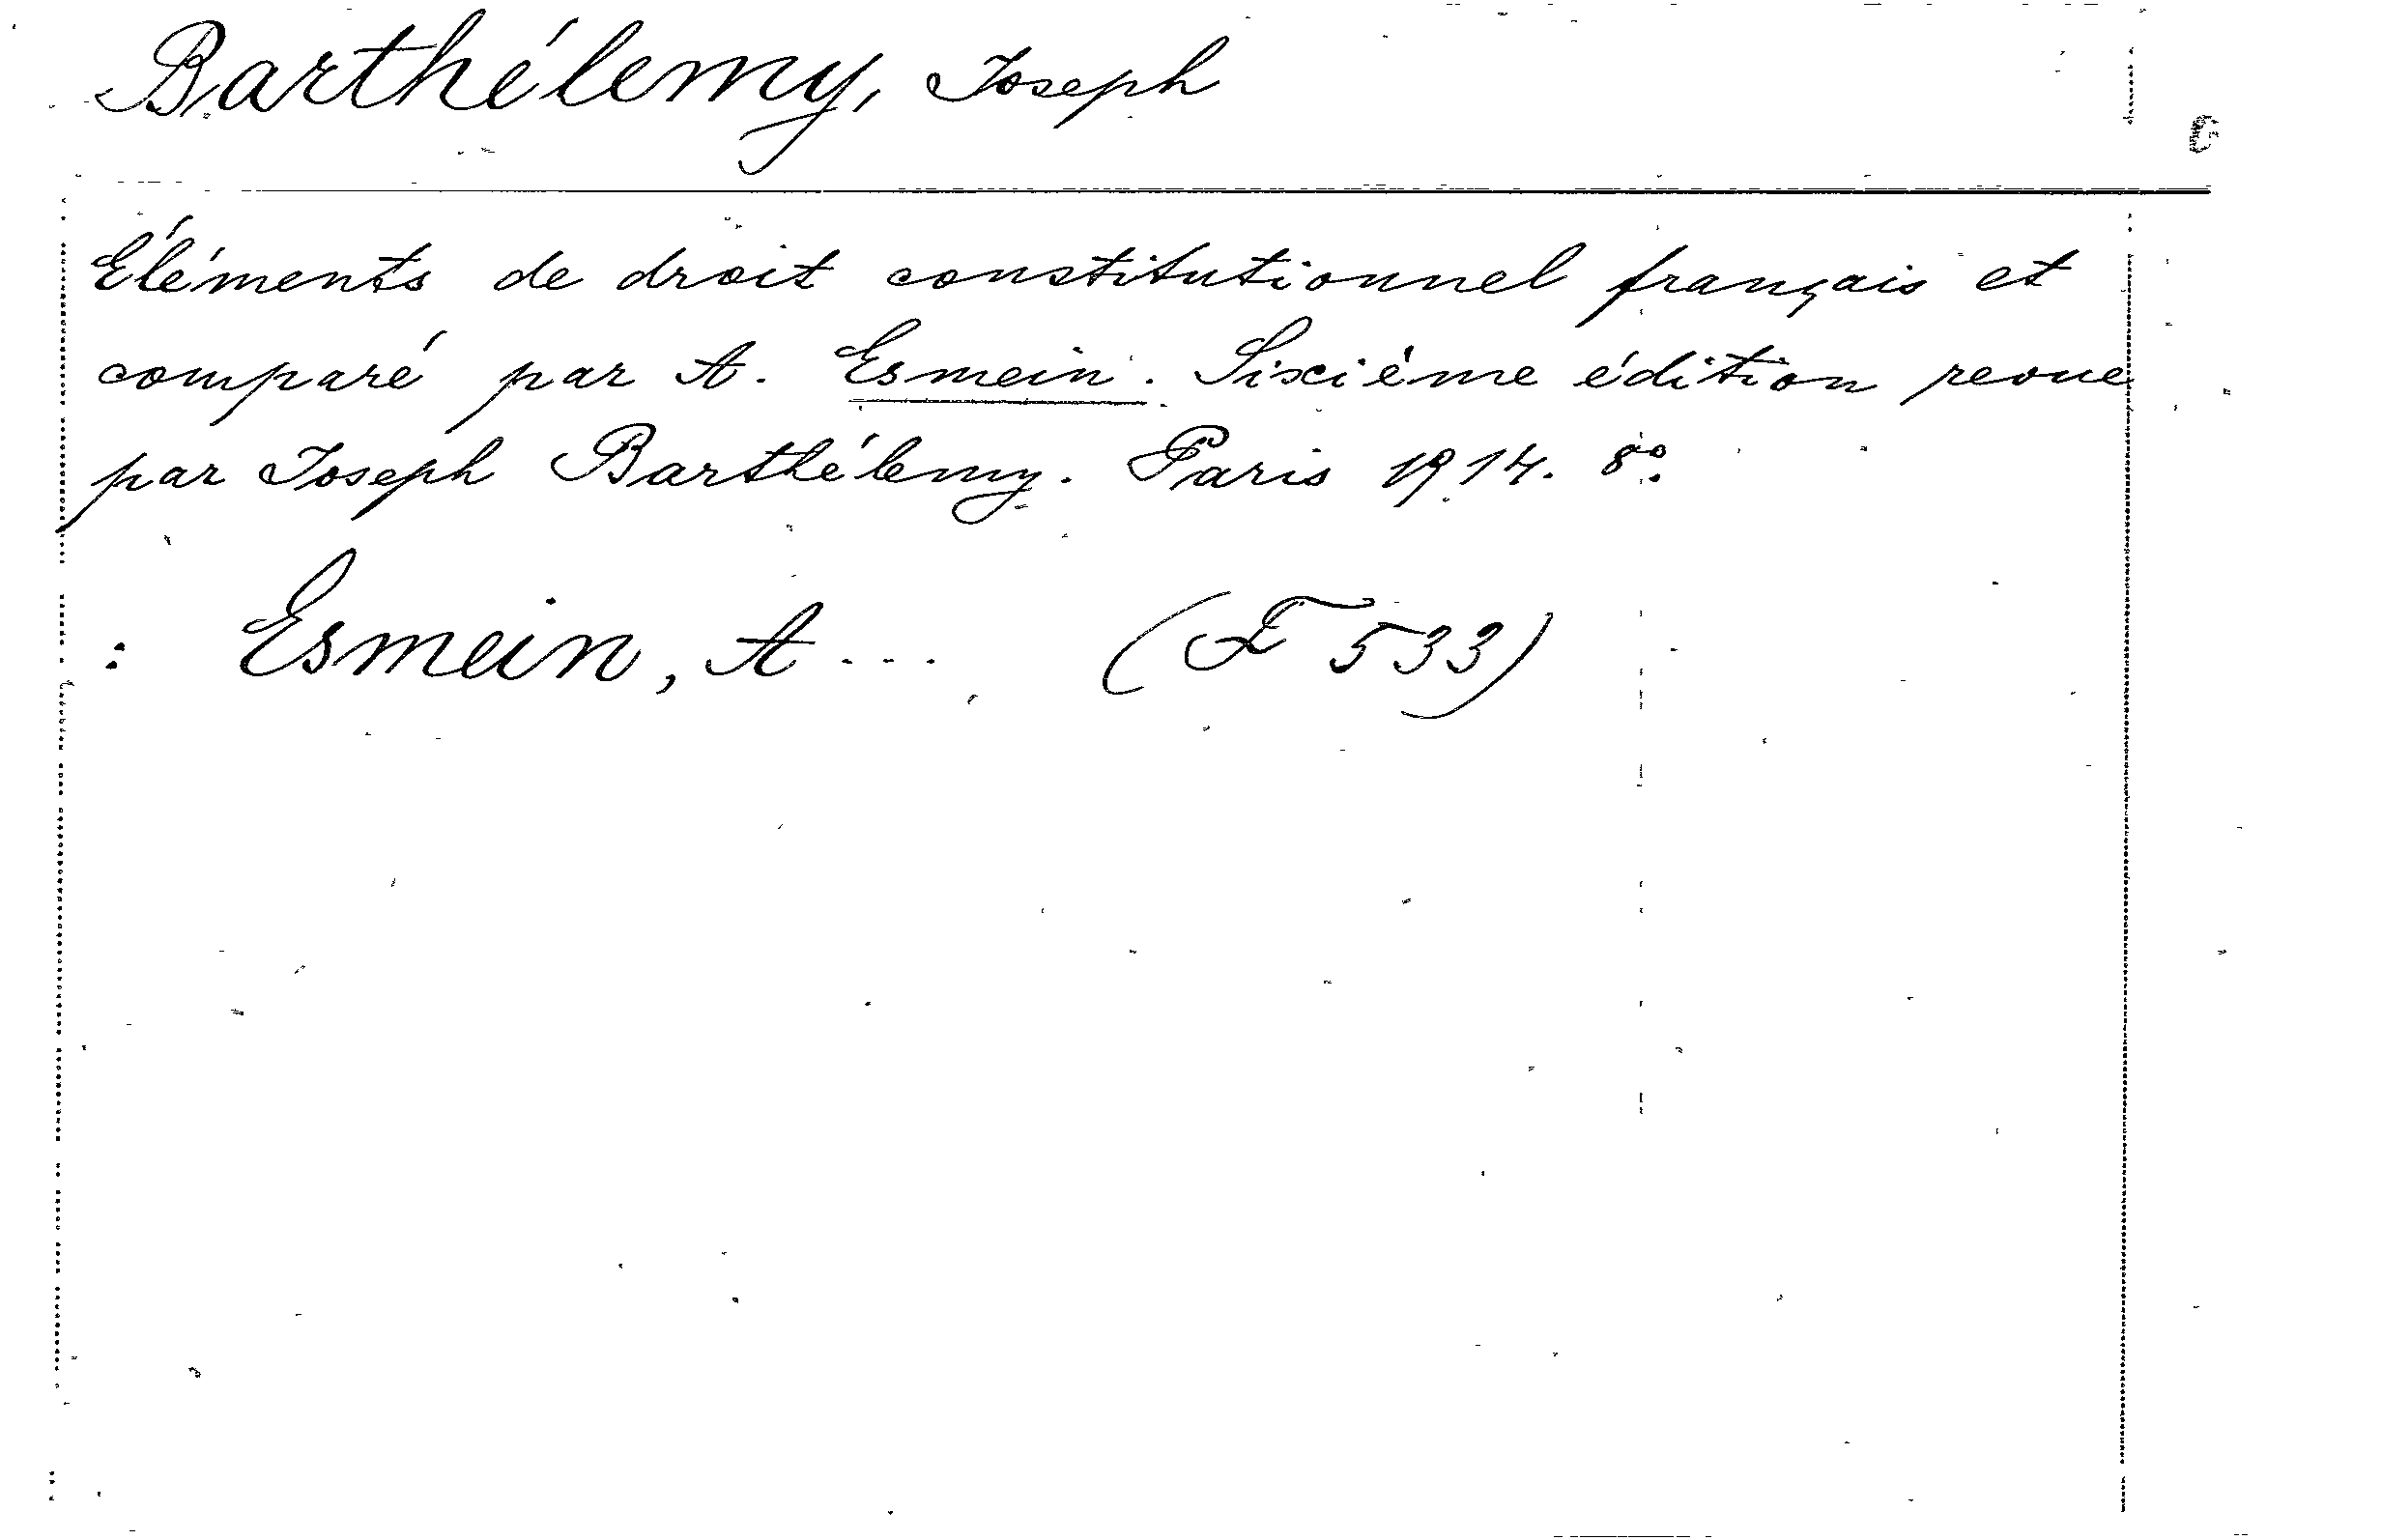 Barthélemy, Joseph
Éléments de droit constitutionnel français et
comparé par A. Esmein. Sixième édition revue
par Joseph Barthélemy. Paris 1914. 8º.
: Esmein, A... (F 533)